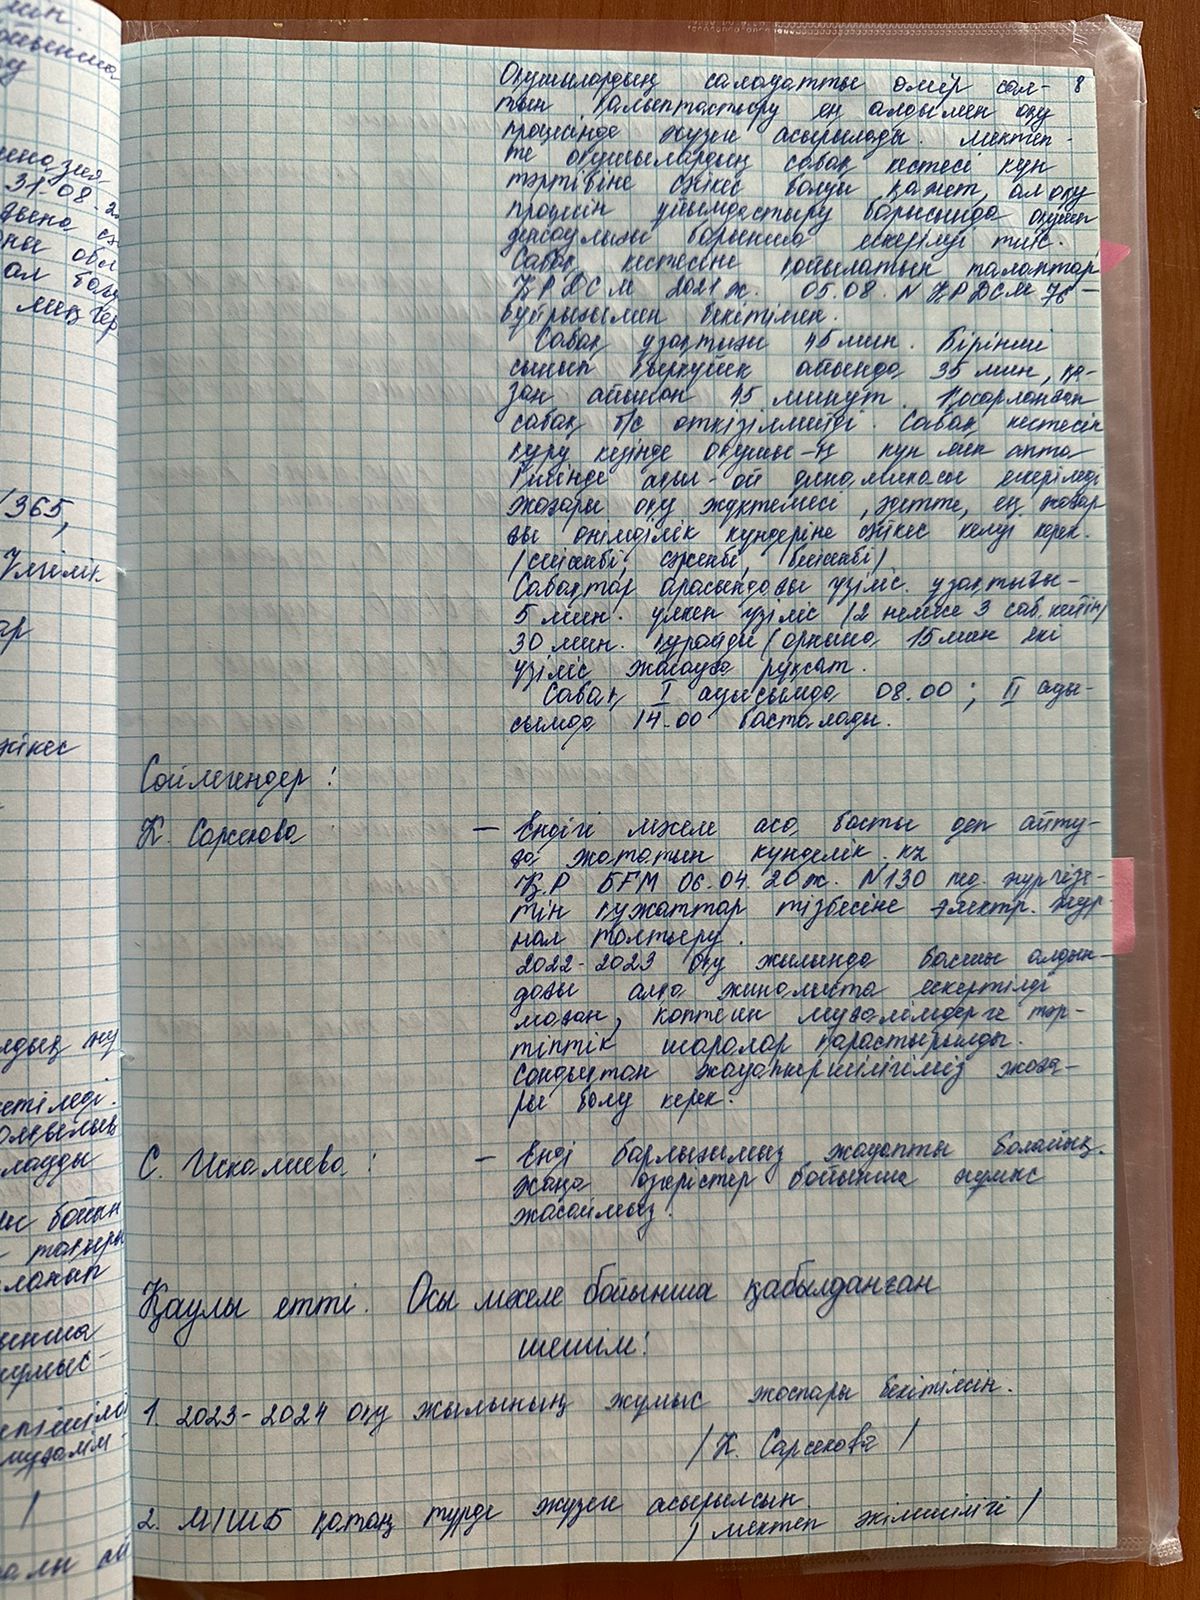 8
Оқушылардың салауатты өмір сал-
тын қалыптастыру ең алдымен оқу
процесінде жүзеге асырылады. Мектеп-
те оқушылардың сабақ кестесі күн
тәртібіне сәйкес болуы қажет, ал оқу
процесін ұйымдастыру барысында оқушы
денсаулығы барынша ескерілуі тиіс.
Сабақ кестесіне қойылатын талаптар
ҚР ДСМ 2021ж. 05.08. N ҚР ДСМ 76 -
бұйрығымен бекітілген.
Сабақ ұзақтығы 45 мин. Бірінші
сынып қыркүйек айында 35 мин, қа-
зан айынан 45 минут. Қосарланған
сабақ б/с өткізілмейді. Сабақ кестесін
құру кезінде оқушы-ң күн мен апта
ішінде ақыл-ой динамикасы ескеріледі
жоғары оқу жүктемесі, аптте, ең жоғар
ғы өнімділік күндеріне сәйкес келуі керек.
/сейсенбі, сәрсенбі, бейсенбі/
Сабақтар арасындағы үзіліс ұзақтығы-
5 мин. үлкен үзіліс /2 немесе 3 саб. кейін/
30 мин. құрайды (орнына, 15 мин екі
үзіліс жасауға рұқсат.
Сабақ I ауысымда 08.00; II ауы-
сымда 14.00 басталады.
Сөйлегендер:
Қ. Сарсекова:
- Ендігі мәселе аса басты деп айту-
ға жататын күнделік.кz
Қ.Р БҒМ 06.04.20ж. N130 пед. жүргізе-
тін құжаттар тізбесіне электр. жур-
нал толтыру.
2022-2023 оқу жылында басшы алдын-
дағы алқа жиналыста ескертілді
маған, көптеген мұғалімдерге тәр-
тіптік шаралар қарастырылды.
Сондықтан жауапкершілігіміз жоға-
ры болу керек.
С. Искалиева:
- Енді барлығымыз жауапты болайық.
жаңа өзгерістер бойынша жұмыс
жасаймыз.
Қаулы етті. Осы мәселе бойынша қабылданған
шешім:
1. 2023-2024 оқу жылының жұмыс жоспары бекітілсін.
/ Қ. Сарсекова /
2. МІШБ қатаң түрде жүзеге асырылсын
/ мектеп әкімшілігі /